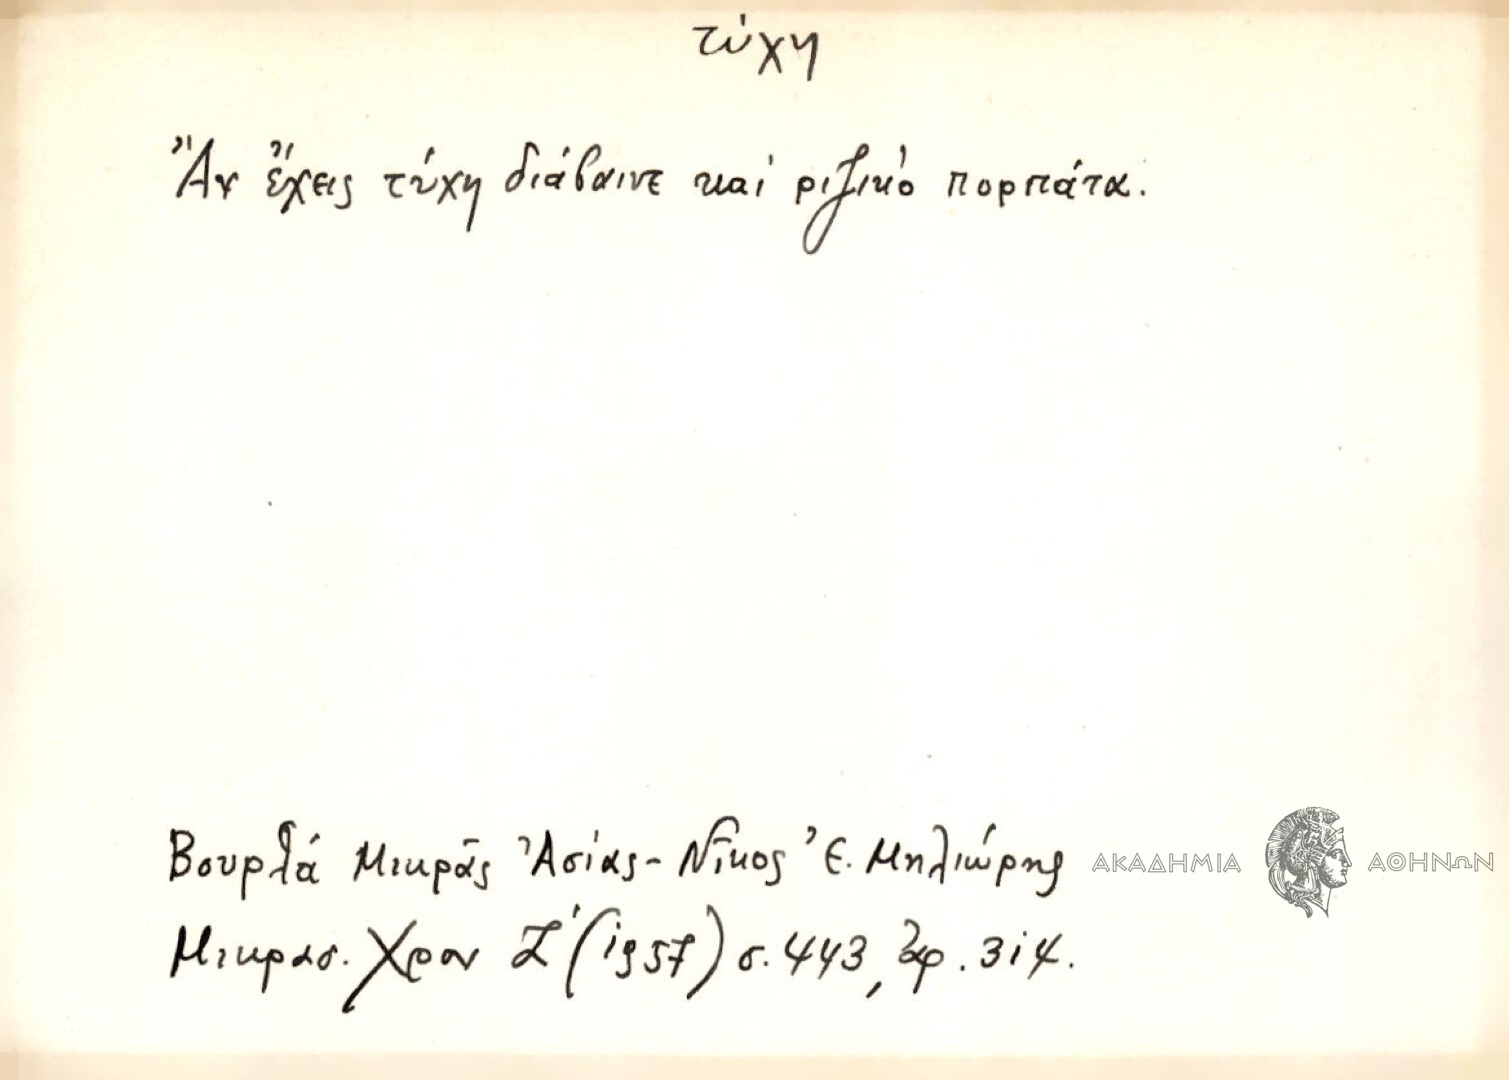 τύχη
Ἂν ἔχεις τύχη διάβαινε καί ριζικὸ πορπάτα.
Βουρλά Μικρᾶς Ἀσίας - Νῖκος Ἐ. Μηλιώρης
ΑΚΑΔΗΜΙΑ ΑΘΗΝΩΝ
Μικρασ. Χρον Ζ΄ (1957) σ. 443, ἀρ. 314.